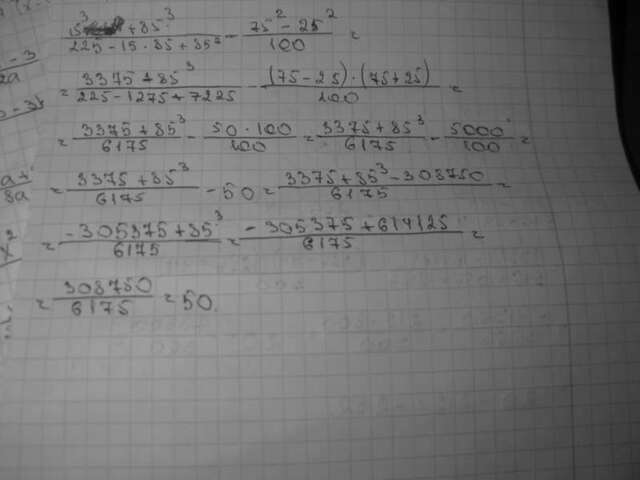 (15³ + 85³)/(225 - 15 · 85 + 85²) - (75² - 25²)/100 =
= (3375 + 85³)/(225 - 1275 + 7225) - ((75 - 25) · (75 + 25))/100 =
= (3375 + 85³)/6175 - (50 · 100)/100 = (3375 + 85³)/6175 - 5000/100 =
= (3375 + 85³)/6175 - 50 = (3375 + 85³ - 308750)/6175 =
= (-305375 + 85³)/6175 = (-305375 + 614125)/6175 =
= 308750/6175 = 50